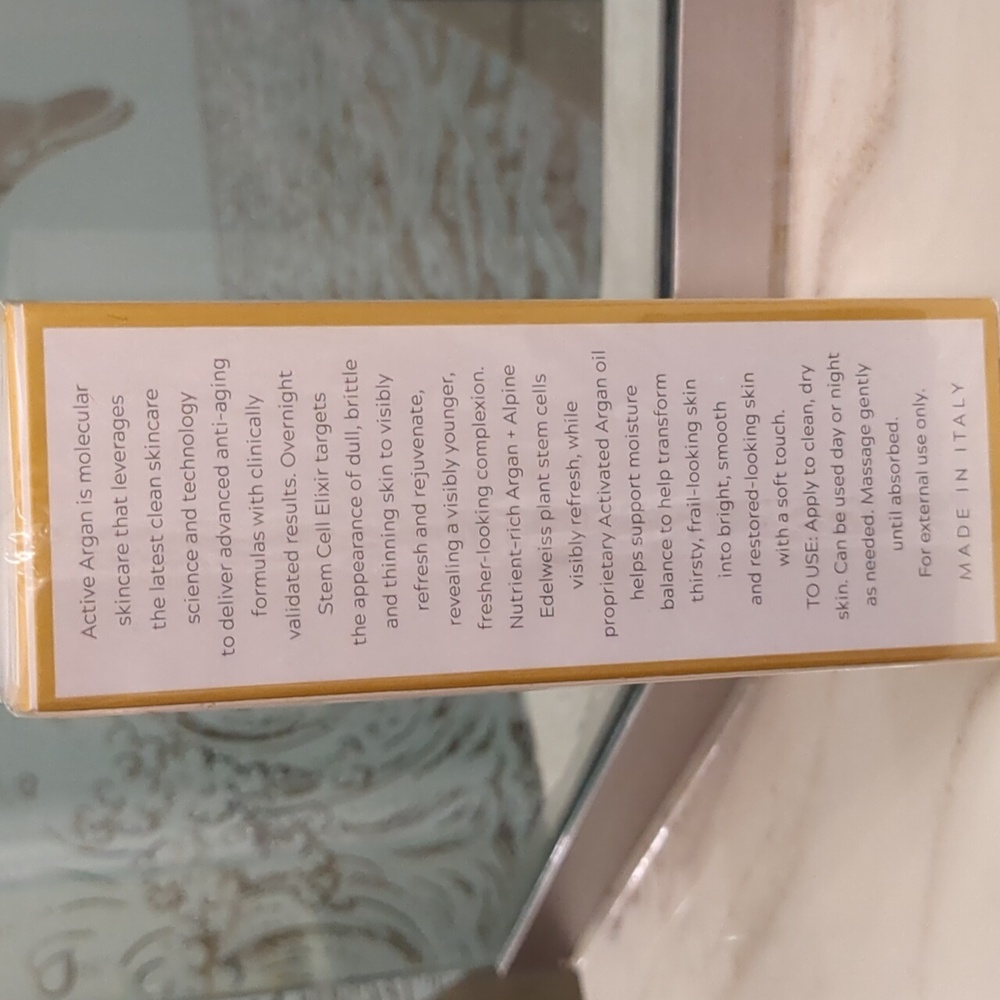 Active Argan is molecular
skincare that leverages
the latest clean skincare
science and technology
to deliver advanced anti-aging
formulas with clinically
validated results. Overnight
Stem Cell Elixir targets
the appearance of dull, brittle
and thinning skin to visibly
refresh and rejuvenate,
revealing a visibly younger,
fresher-looking complexion.
Nutrient-rich Argan + Alpine
Edelweiss plant stem cells
visibly refresh, while
proprietary Activated Argan oil
helps support moisture
balance to help transform
thirsty, frail-looking skin
into bright, smooth
and restored-looking skin
with a soft touch.
TO USE: Apply to clean, dry
skin. Can be used day or night
as needed. Massage gently
until absorbed.
For external use only.
MADE IN ITALY